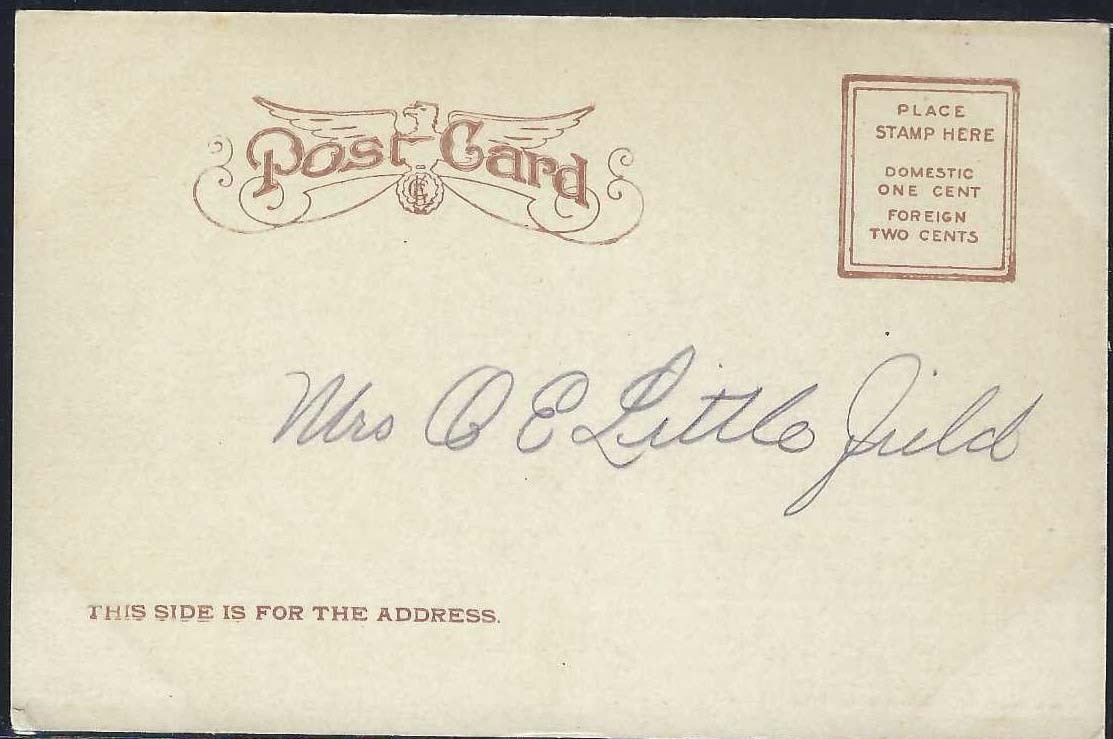 Post Card
PLACE
STAMP HERE
DOMESTIC
ONE CENT
FOREIGN
TWO CENTS
Mrs O E Little Field
THIS SIDE IS FOR THE ADDRESS.